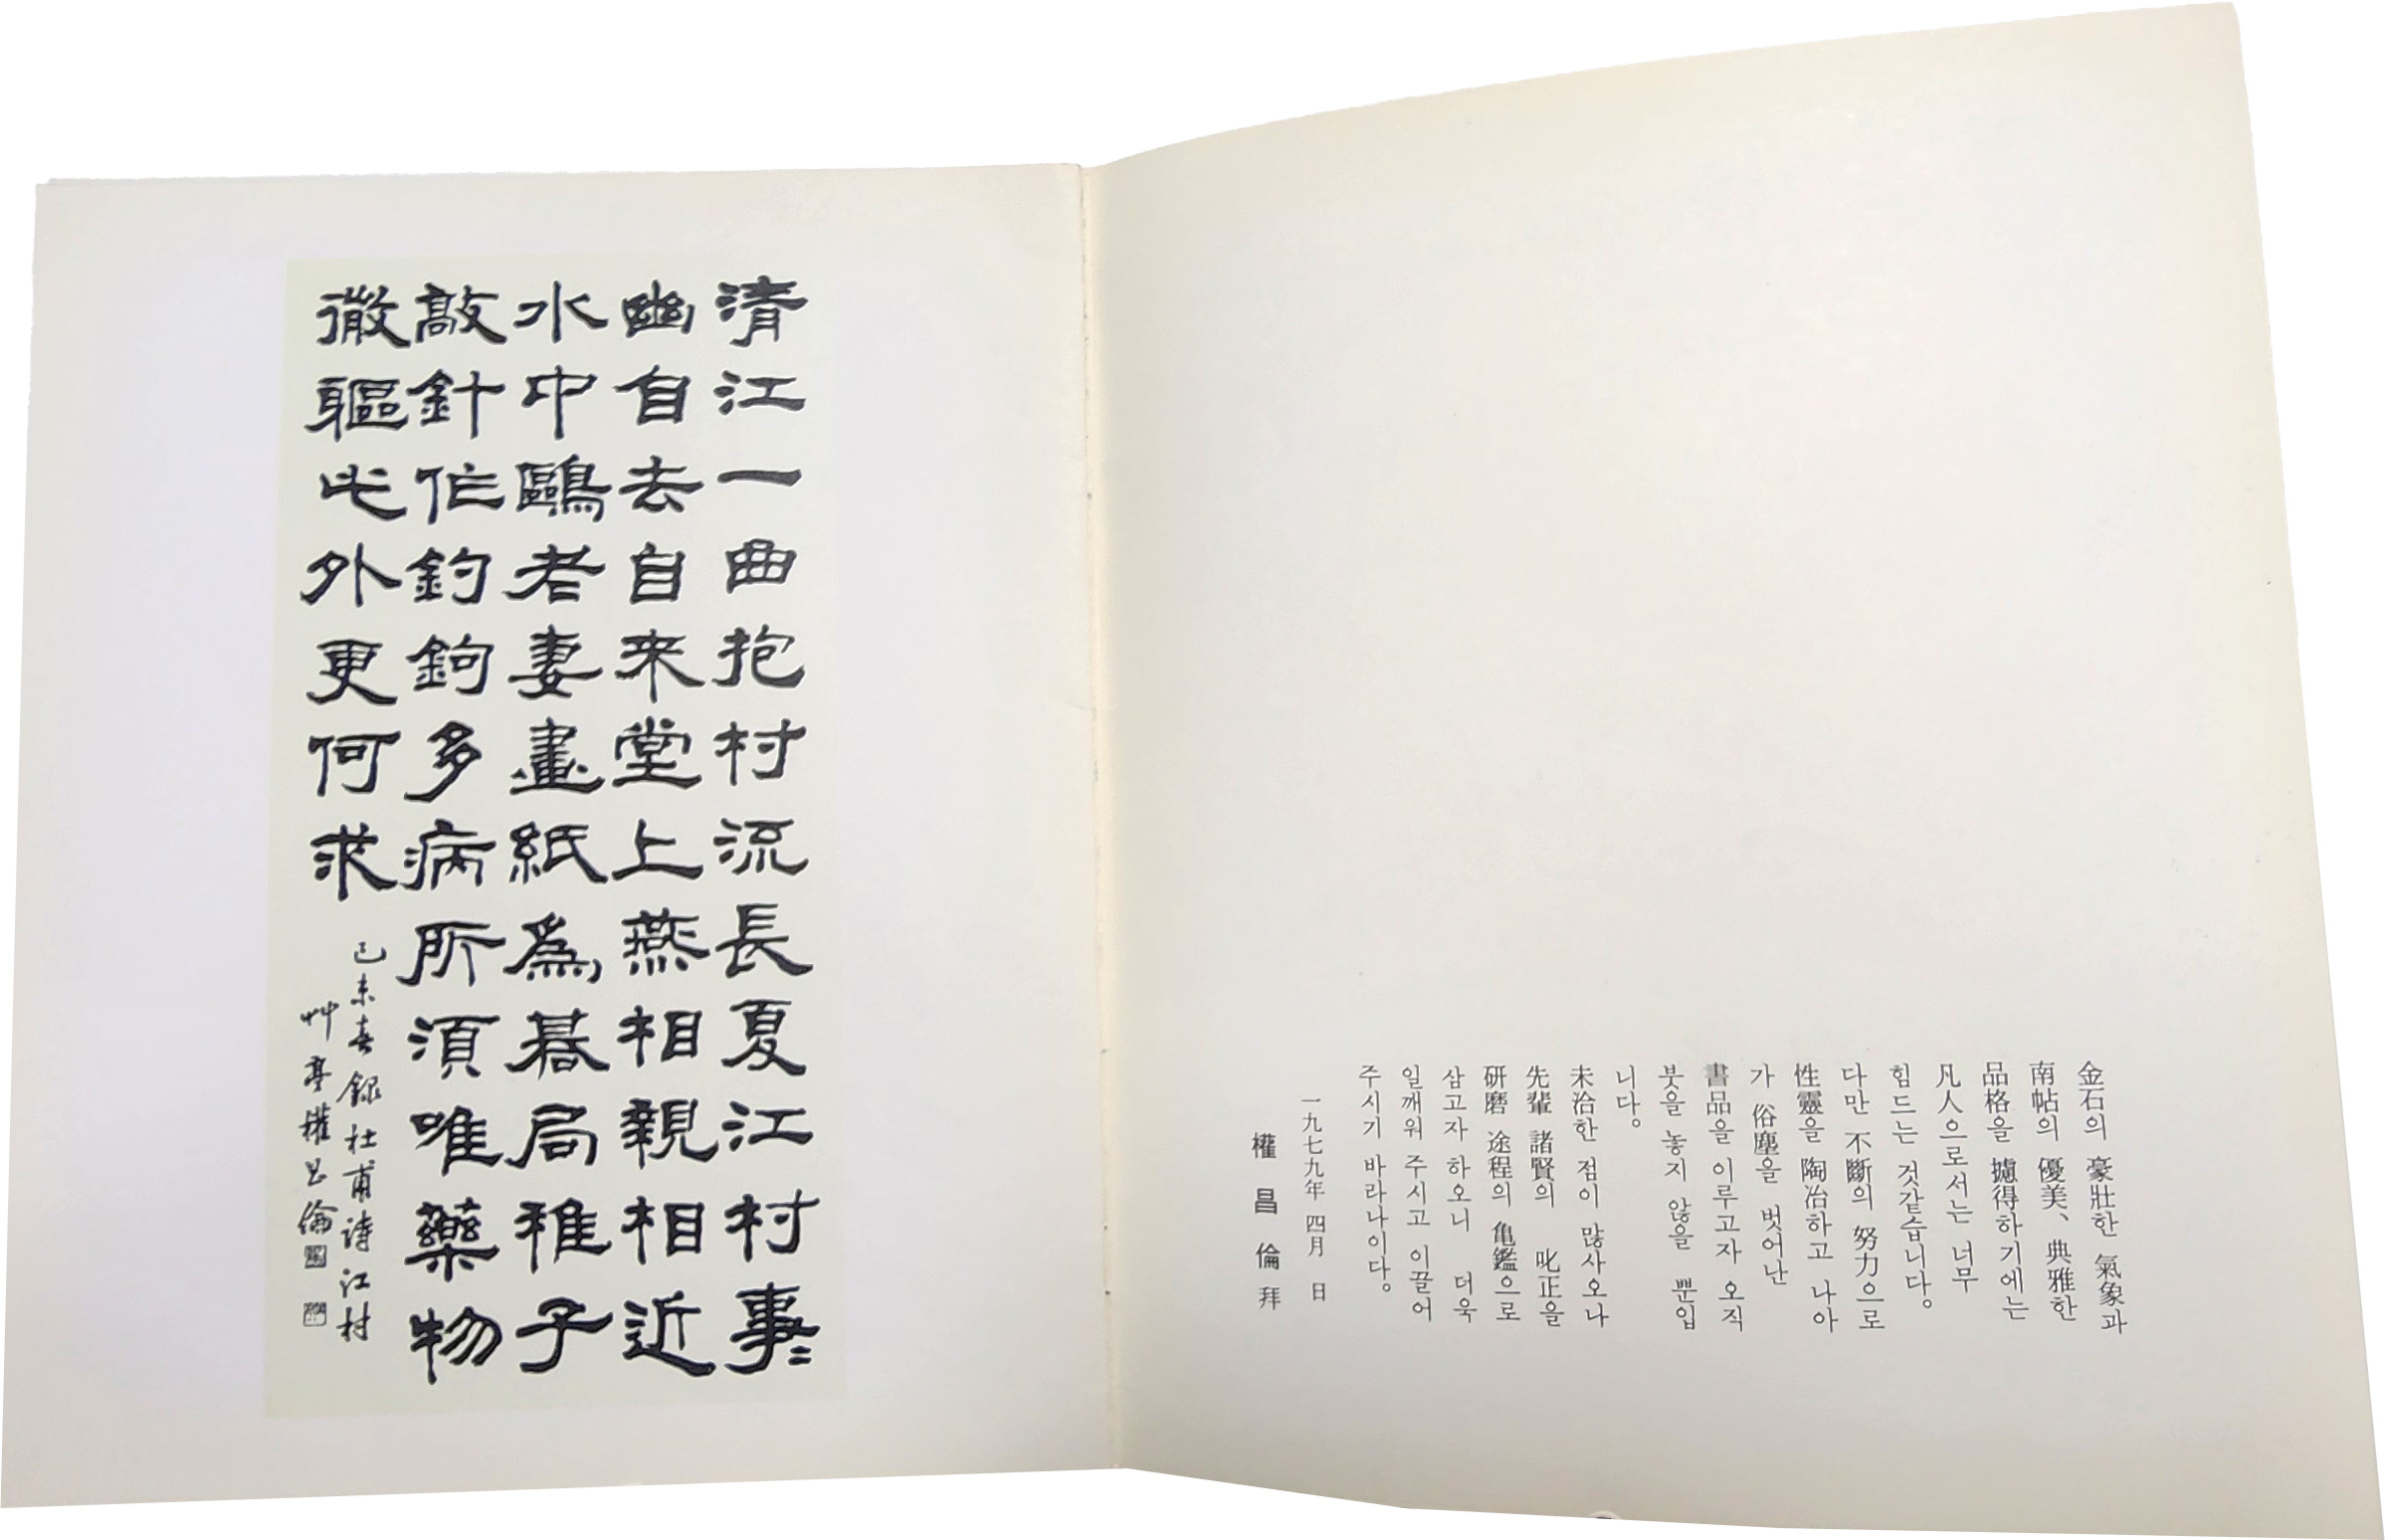 金石의 豪壯한 氣象과
南帖의 優美、典雅한
品格을 攄得하기에는
凡人으로서는 너무
힘드는 것같습니다。
다만 不斷의 努力으로
性靈을 陶冶하고 나아
가 俗塵을 벗어난
書品을 이루고자 오직
붓을 놓지 않을 뿐입
니다。
未洽한 점이 많사오나
先輩 諸賢의 叱正을
研磨 途程의 亀鑑으로
삼고자 하오니 더욱
일깨워 주시고 이끌어
주시기 바라나이다。
一九七九年 四月 日
權 昌 倫 拜
清江一曲抱村流長夏江村事〻
幽自去自来堂上燕相親相近
水中鷗老妻畫紙爲碁局稚子
敲針作釣鉤多病所須唯藥物
微軀此外更何求
己未春録杜甫詩江村
艸亭權昌倫